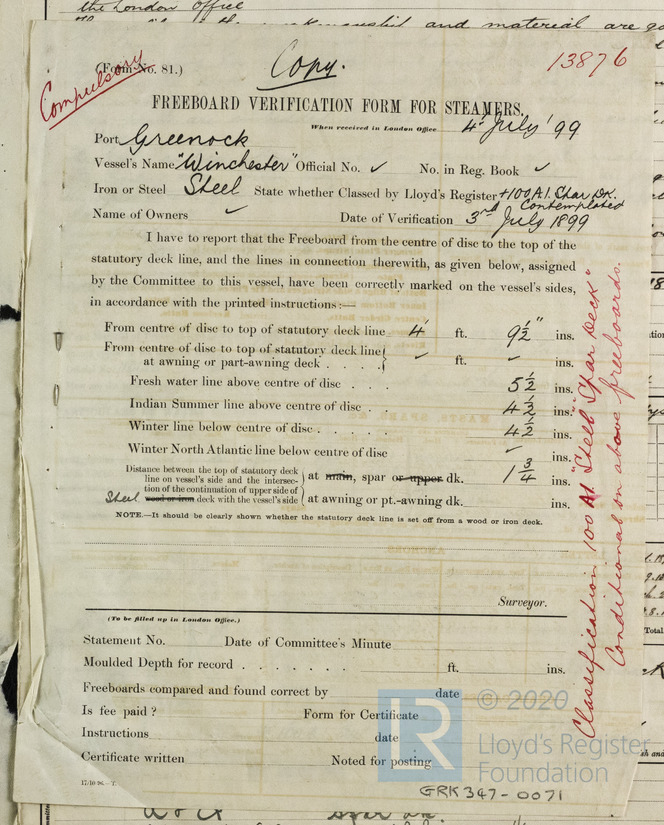 the London Office
and material are
(Form No. 81.)
Compulsory
Copy.
13876
FREEBOARD VERIFICATION FORM FOR STEAMERS,
When received in London Office 4th July '99
Port Greenock
Vessel's Name "Winchester" Official No. ✓ No. in Reg. Book ✓
Iron or Steel Steel State whether Classed by Lloyd's Register +100 A.1. Spar Dk. Contemplated
Name of Owners ✓ Date of Verification 3rd July 1899
I have to report that the Freeboard from the centre of disc to the top of the
statutory deck line, and the lines in connection therewith, as given below, assigned
by the Committee to this vessel, have been correctly marked on the vessel's sides,
in accordance with the printed instructions:—
From centre of disc to top of statutory deck line 4' ft. 9½" ins.
From centre of disc to top of statutory deck line
at awning or part-awning deck . . . . ✓ ft. ✓ ins.
Fresh water line above centre of disc . . . 5½ ins.
Indian Summer line above centre of disc . . . 4½ ins.
Winter line below centre of disc . . . . 4½ ins.
Winter North Atlantic line below centre of disc ✓ ins.
Distance between the top of statutory deck
line on vessel's side and the intersec-
tion of the continuation of upper side of
Steel wood or iron deck with the vessel's side
at main, spar or upper dk. 1¾ ins.
at awning or pt.-awning dk. ins.
NOTE.—It should be clearly shown whether the statutory deck line is set off from a wood or iron deck.
Surveyor.
(To be filled up in London Office.)
Statement No. Date of Committee's Minute
Moulded Depth for record . . . . . . . ft. ins.
Freeboards compared and found correct by date
Is fee paid ? Form for Certificate
Instructions date
Certificate written Noted for posting
17/10/98.—T.
Classification 100 A1. "Steel Spar Deck"
Conditional on above freeboards.
© 2020
LR
Lloyd's Register
Foundation
GRK347-0071
Total